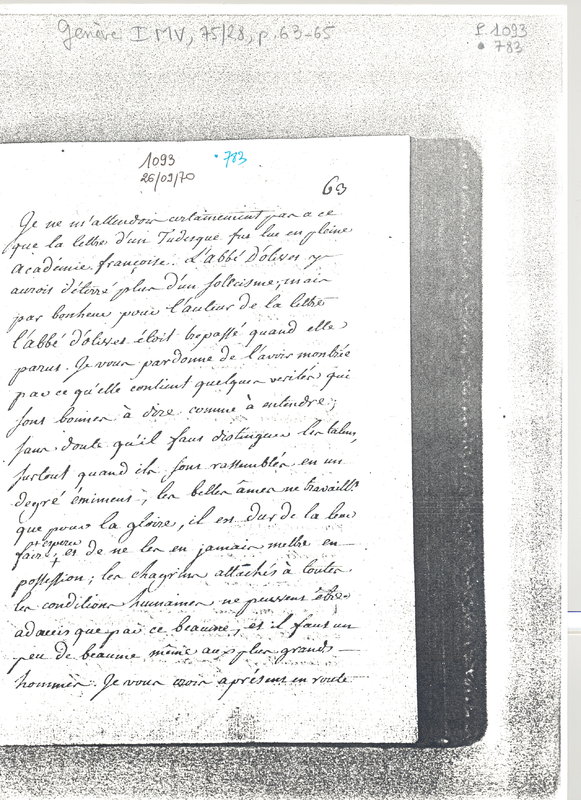 Genève I MV, 75/28, p. 63-65
P 1093
• 783
1093 • 783
26/09/70
63
Je ne m'attendois certainement pas a ce
que la lettre d'un Tudesque fut lue en pleine
académie françoise. L'abbé D'olivet y
auroit détérré plus d'un sollecisme, mais
par bonheur pour l'auteur de la lettre
l'abbé d'olivet étoit trepassé quand elle
parut. Je vous pardonne de l'avoir montrée
par ce qu'elle contient quelques verités qui
sont bonnes à dire comme à entendre;
sans doute qu'il faut distinguer les talens,
surtout quand ils sont rassemblés en un
degré éminent; les belles âmes ne travaill.t
que pour la gloire, il est dur de la leur
faire espérer et de ne les en jamais mettre en
possession; les chagrins attachés à toutes
les conditions humaines ne peuvent être
adoucis que par ce beaume, et il faut un
peu de beaume même aux plus grands
hommes. Je vous crois aprésent en route